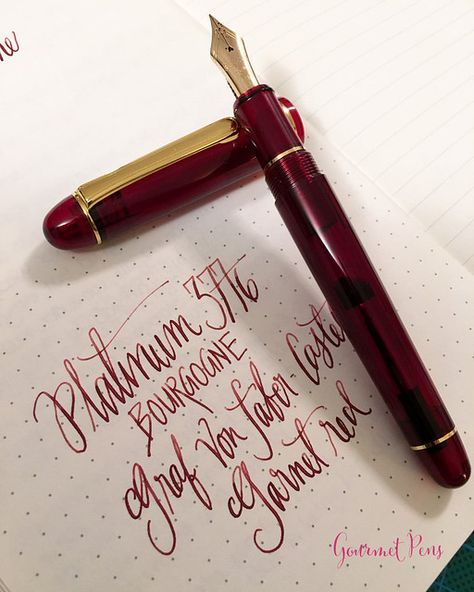 Platinum 3776
BOURGOGNE
Graf Von Faber-Castel
Garnet red
Gourmet Pens